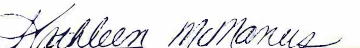 Kathleen McManus